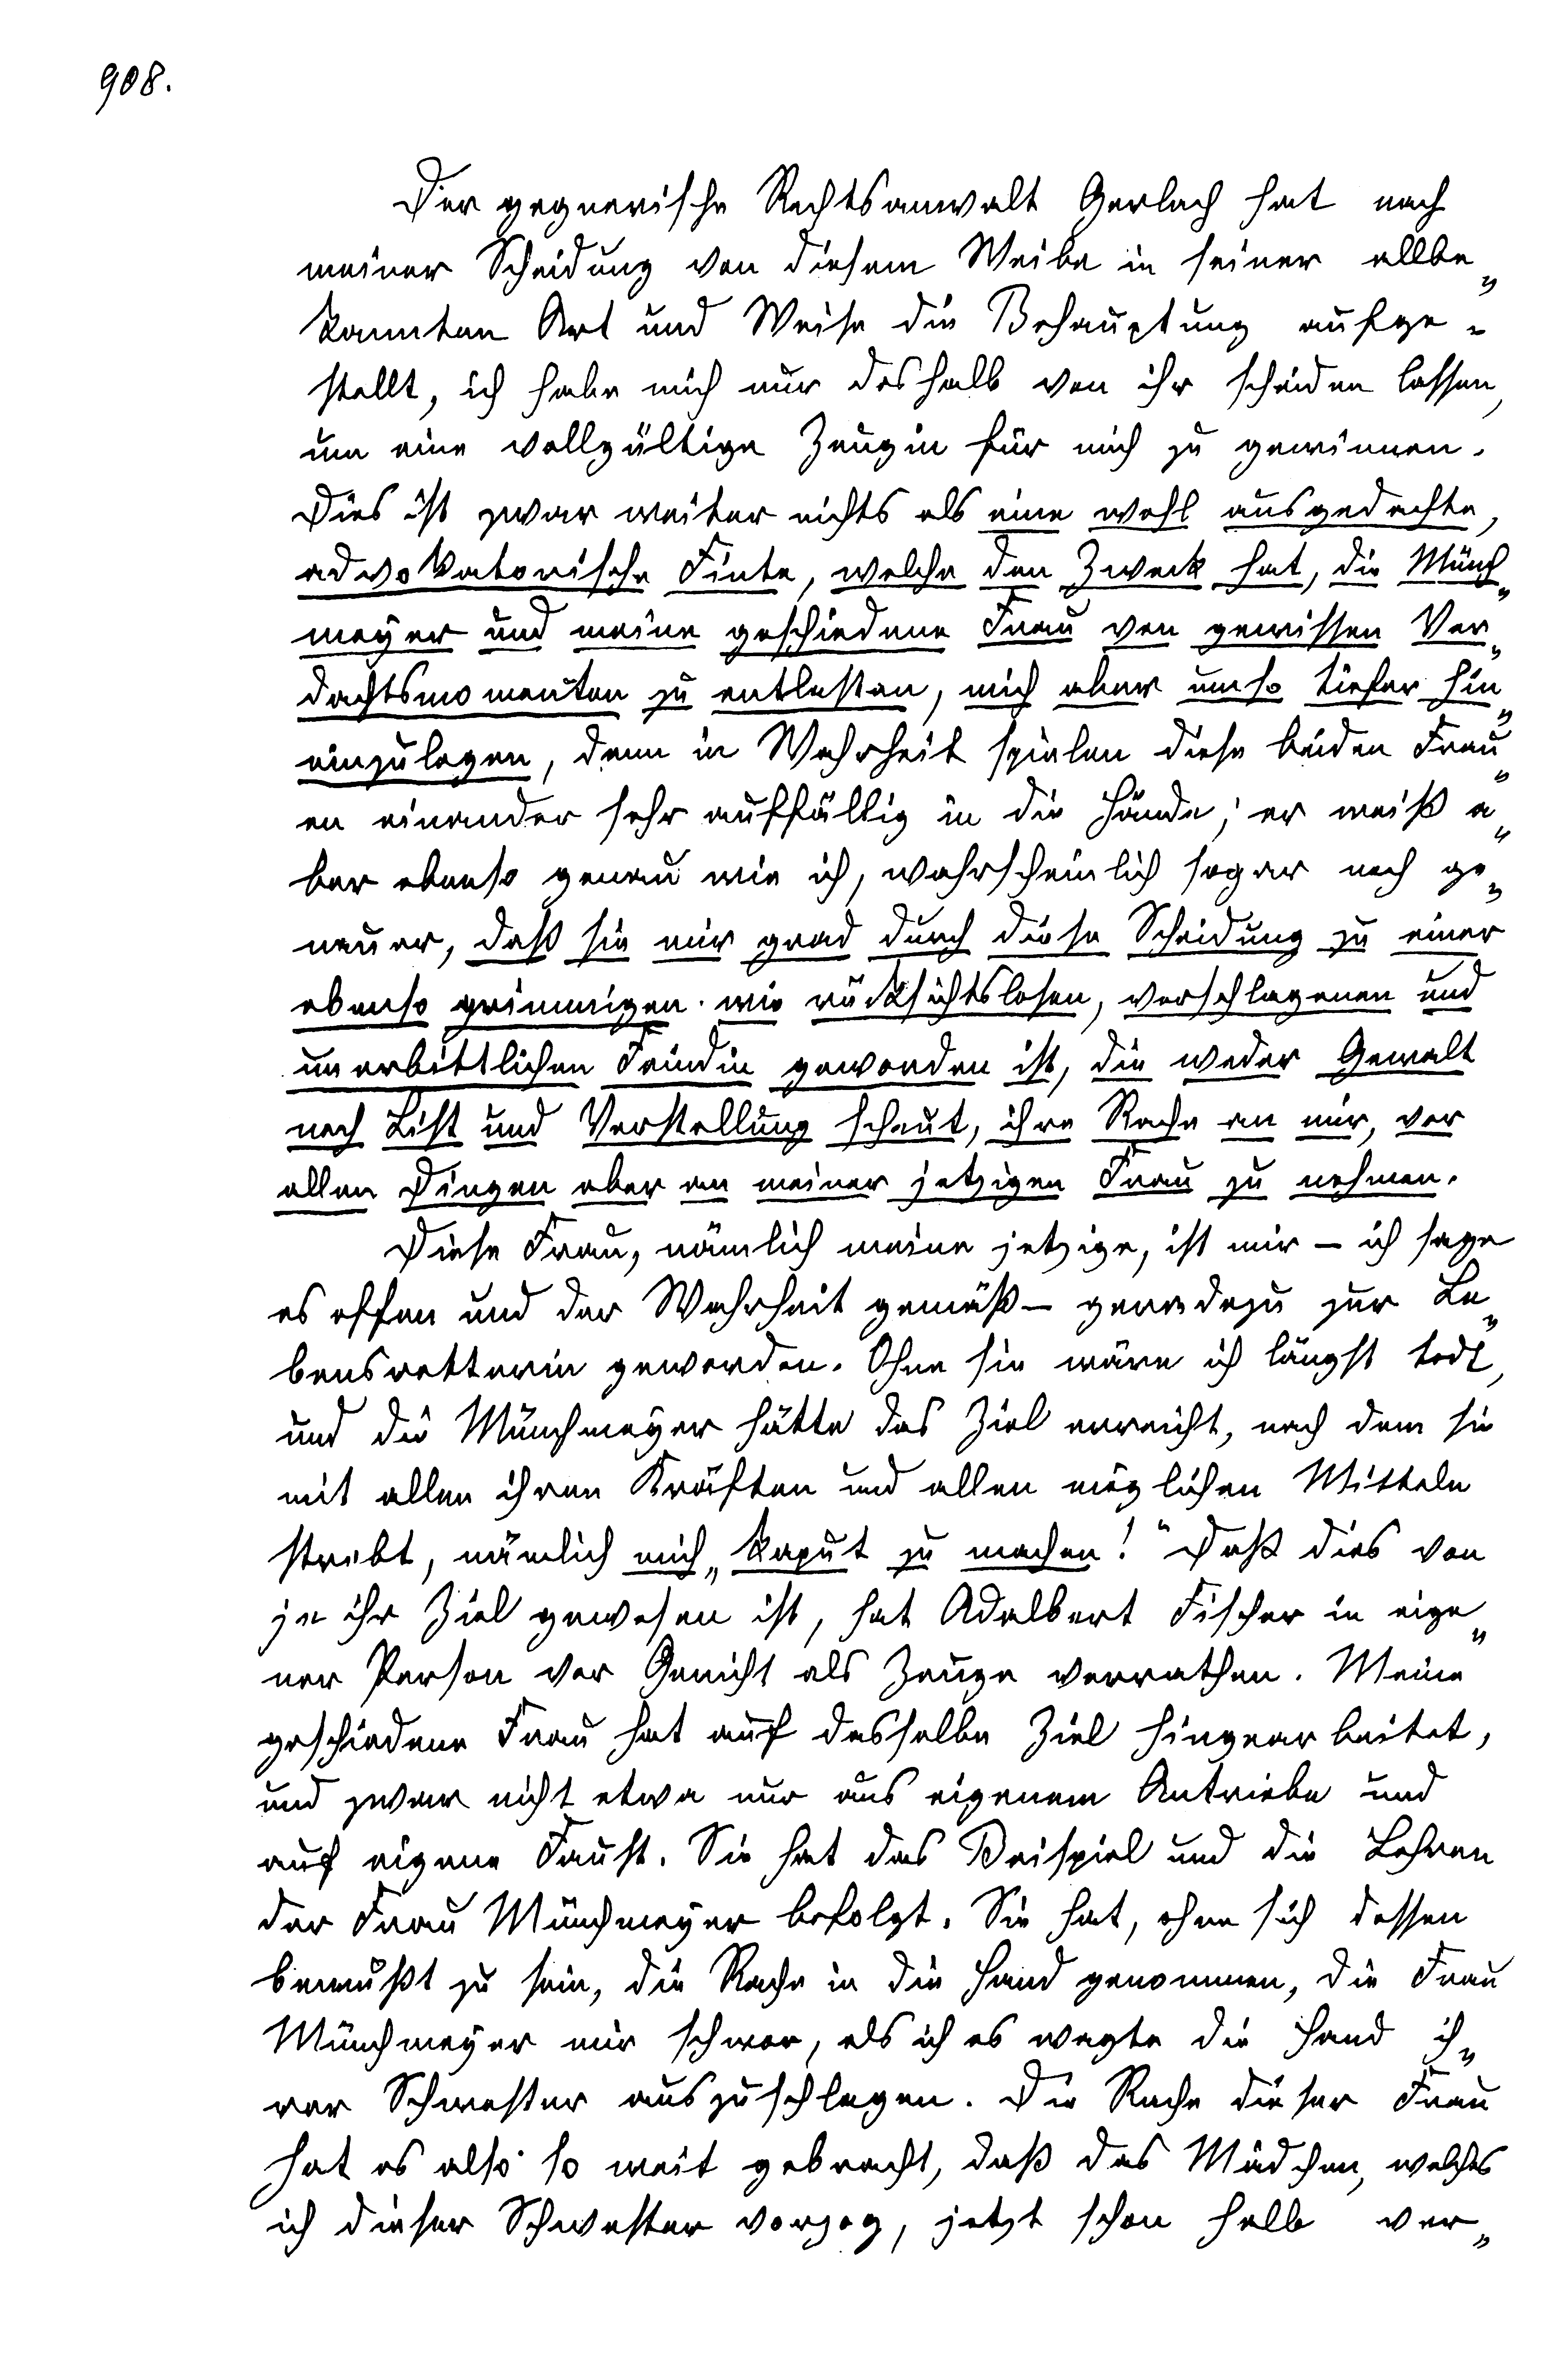 908.
Der gegnerische Rechtsanwalt Gerlach hat nach
meiner Scheidung von diesem Weibe in seiner allbe„
kannten Art und Weise die Behauptung aufge-
stellt, ich habe mich nur deshalb von ihr scheiden lassen,
um eine vollgültige Zeugin für mich zu gewinnen.
Dies ist zwar weiter nichts als eine wohl ausgedachte,
advokatorische Finte, welche den Zweck hat, die Münch„
meyer und meine geschiedene Frau von gewissen Ver„
dachtsmomenten zu entlasten, mich aber umso tiefer hin„
einzulegen, denn in Wahrheit spielen diese beiden Frau„
en einander sehr auffällig in die Hände; er weiß a„
ber ebenso genau wie ich, wahrscheinlich sogar noch ge„
nauer, daß sie mir grad durch diese Scheidung zu einer
ebenso grimmigen wie rücksichtslosen, verschlagenen und
unerbittlichen Feindin geworden ist, die weder Gewalt
noch List und Verstellung scheut, ihre Rache an mir, vor
allen Dingen aber an meiner jetzigen Frau zu nehmen.
Diese Frau, nämlich meine jetzige, ist mir – ich sage
es offen und der Wahrheit gemäß – geradezu zur Le„
bensretterin geworden. Ohne sie wäre ich längst todt,
und die Münchmeyer hätte das Ziel erreicht, nach dem sie
mit allen ihren Kräften und allen möglichen Mitteln
strebt, nämlich mich „kaput zu machen!“ Daß dies von
je ihr Ziel gewesen ist, hat Adalbert Fischer in eige„
ner Person vor Gericht als Zeuge verrathen. Meine
geschiedene Frau hat auf dasselbe Ziel hingearbeitet,
und zwar nicht etwa nur aus eigenem Antriebe und
auf eigene Faust. Sie hat das Beispiel und die Lehren
der Frau Münchmeyer befolgt. Sie hat, ohne sich dessen
bewußt zu sein, die Rache in die Hand genommen, die Frau
Münchmeyer mir schwor, als ich es wagte die Hand ih„
rer Schwester auszuschlagen. Die Rache dieser Frau
hat es also so weit gebracht, daß das Mädchen, welches
ich dieser Schwester vorzog, jetzt schon halb ver„